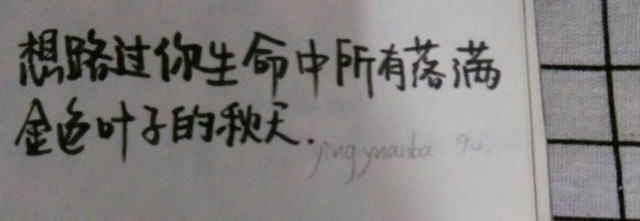 想路过你生命中所有落满
金色叶子的秋天.